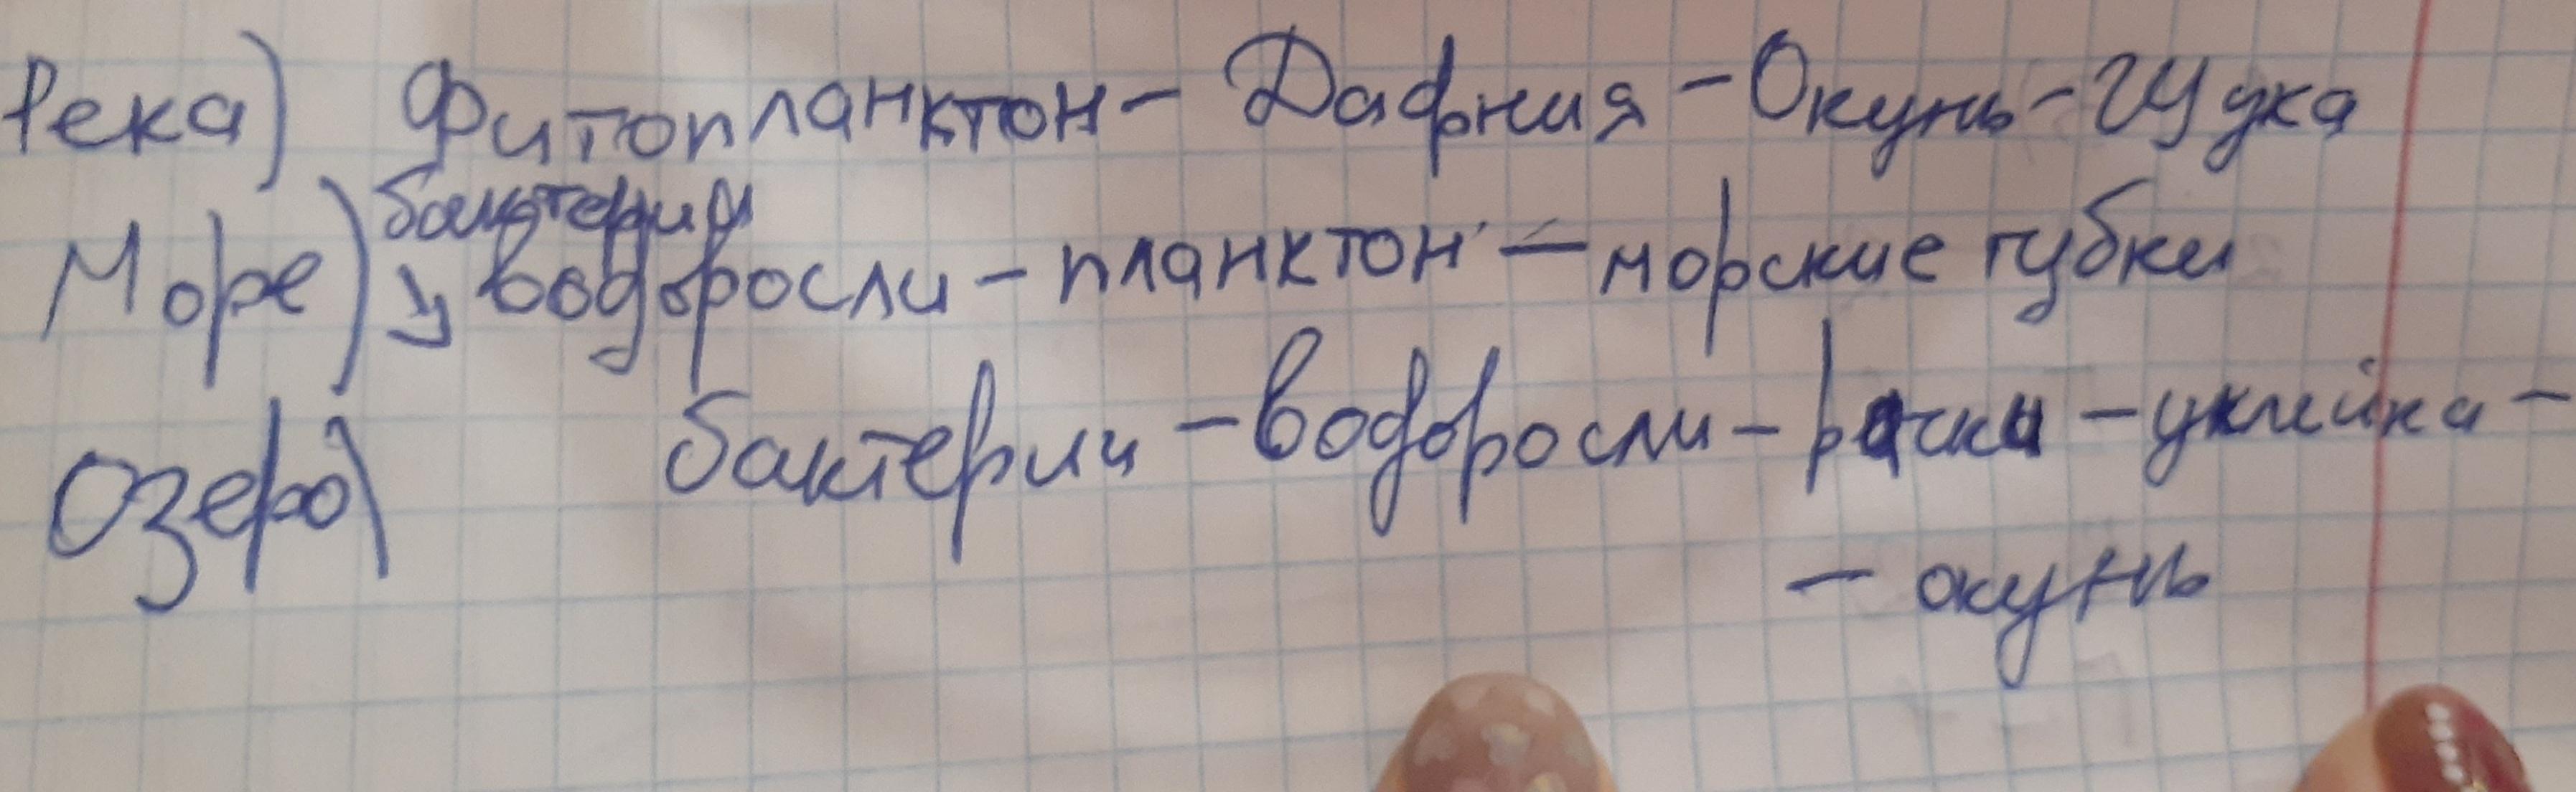 Река) Фитопланктон - Дафния - Окунь - Щука
бактерии
Море) ↘ водоросли - планктон - морские губки
Озеро) бактерии - водоросли - рачки - уклейка -
- окунь